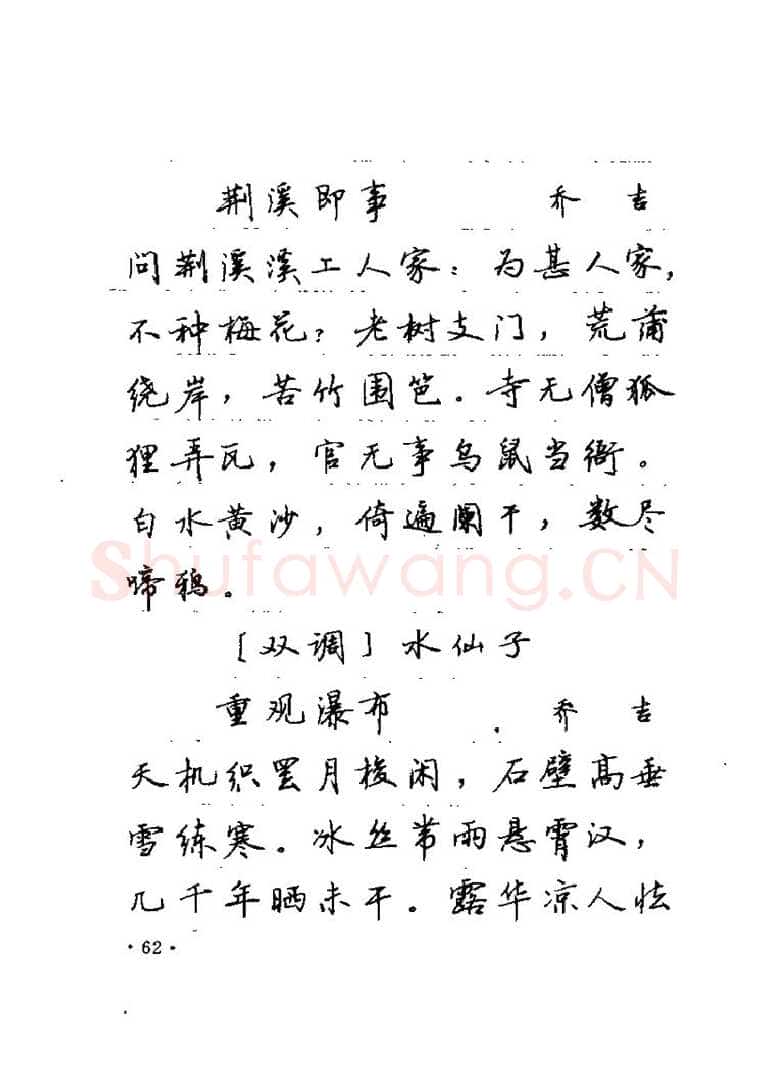 荆溪即事 乔吉
问荆溪溪上人家：为甚人家，
不种梅花？老树支门，荒蒲
绕岸，苦竹围笆。寺无僧狐
狸弄瓦，官无事乌鼠当衙。
白水黄沙，倚遍阑干，数尽
啼鸦。
[双调]水仙子
重观瀑布 乔吉
天机织罢月梭闲，石壁高垂
雪练寒。冰丝带雨悬霄汉，
几千年晒未干。露华凉人怯
·62·
Shufawang.CN